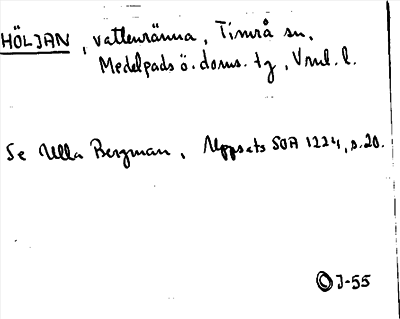 HÖLJAN, vattenränna, Timrå sn,
Medelpads ö. doms. tg, Vrnl. l.
Se Ulla Bergman, Uppsats SOA 1224, s. 20.
J-55